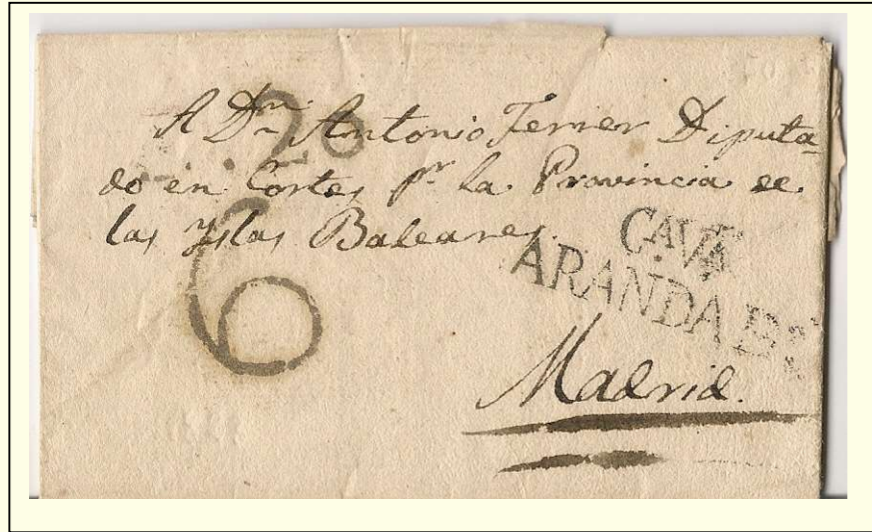 A Dn. Antonio Ferrer Diputa=
do en Cortes pr. la Provincia de
las Yslas Baleares.
26
6
CAVA
ARANDA D
Madrid.